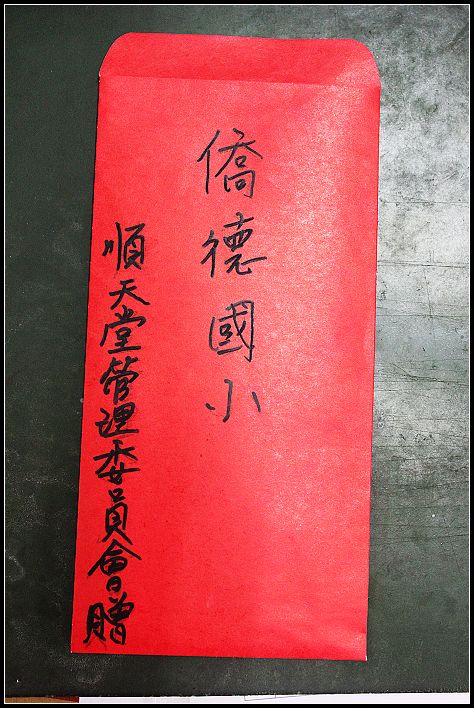 僑德國小
順天堂管理委員會贈